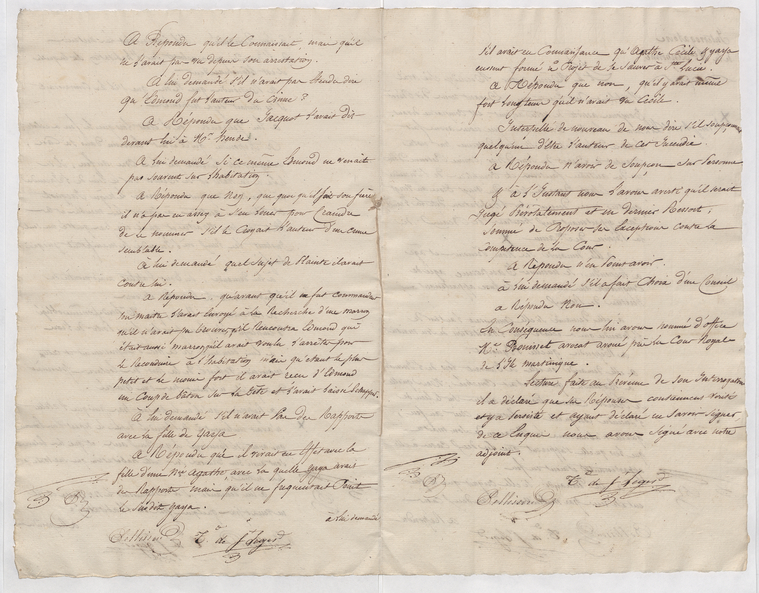 A Répondu qu'il le Connaissait, mais qu'il
ne l'avait pas vu depuis son arrestation.
A lui demandé s'il n'avait pas Entendu dire
qu'Edmond fut l'auteur du Crime ?
A Répondu que Jacquot l'avait dit
devant lui à Mr
A lui demandé si ce même Edmond ne venait
pas souvent sur l'habitation.
A Répondu que Non, que quoiqu'il soit son frère
il n'a pas
de le nommer s'il le Croyait l'auteur d'un crime
semblable.
à lui demandé quel sujet de Plainte il avait
contre lui.
a Répondu, qu'avant qu'il ne fut commandeur
son maître l'avait Envoyé à la Recherche d'un marron
qu'il n'avait pu trouver, qu'il Rencontra Edmond qui
était aussi marron, qu'il avait voulu l'arrêter pour
le Reconduire à l'habitation mais qu'étant le plus
petit et le moins fort il avait reçu d'Edmond
un Coup de bâton sur la tête et l'avait laissé Echapper.
A lui demandé s'il n'avait Pas des Rapports
avec la fille de Yaya
A Répondu que il vivait en Effet avec la
fille d'une Nse Agathe avec la quelle Yaya avait
des Rapports mais qu'il ne fréquentait Point
la dite Yaya.
à lui demandé
s'il avait eu Connaissance qu'Agathe Cécile & Yaya
eussent formé le Projet de se sauver à Ste Lucie.
a Répondu que non, qu'il y avait même
fort longtems qu'il n'avait vu Cécile.
Interpellé de nouveau de nous dire s'il soupçonne
quelqu'un d'être l'auteur de cet Incendie
a Répondu n'avoir de Soupçon sur Personne
à l'Instant nous l'avons averti qu'il serait
Jugé Prévôtalement et en dernier Ressort,
sommé de Proposer ses Exceptions contre la
compétence de la Cour.
A Répondu n'en Point avoir.
à lui demandé s'il a fait Choix d'un Conseil
a Répondu Non.
En Conséquence nous lui avons nommé d'office
Me avocat avoué près la Cour Royale
de l'Isle martinique.
Lecture faite au Prévenu de son Interrogatoire
il a déclaré que ses Réponses contiennent vérité
et y a persisté et ayant déclaré ne savoir signer
de ce Enquis nous avons signé avec notre
adjoint.